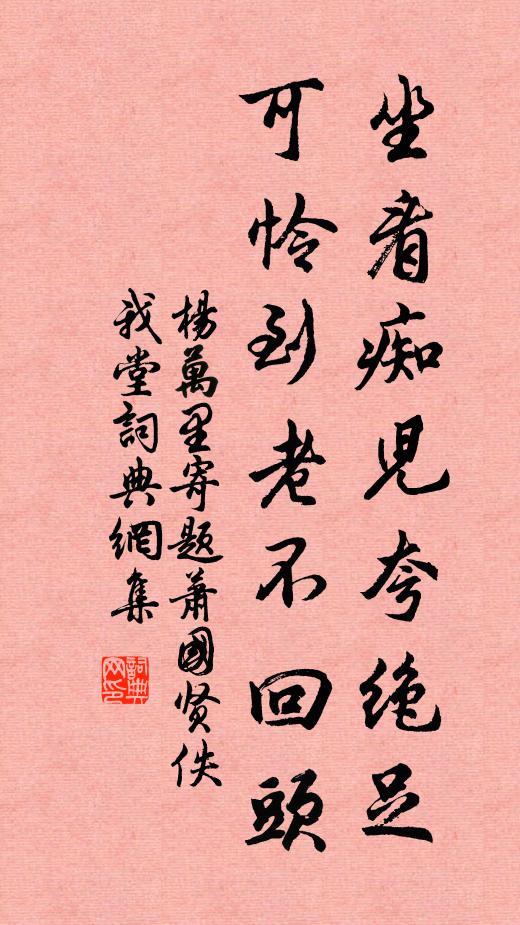 坐看痴児夸绝足
可怜到老不回頭
楊萬里寄题蕭國贤佚
我堂詞典網集
詞典网印